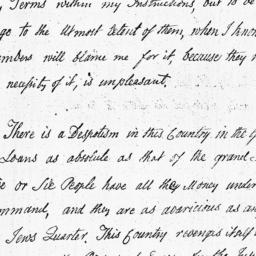 Terms within my Instructions, but to be
go to the Utmost Extent of them, when I know
mbers will blame me for it, because they n
necessity of it, is unpleasant.
There is a Despotism in this Country in the G
Loans as absolute as that of the grand
or Six People have all they Money under
ommand, and they are as avaricious as any
Jews Quarter. This Country revenges itself